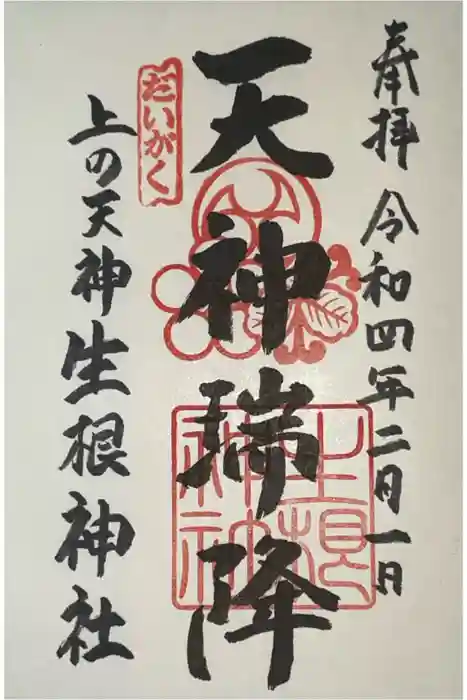 奉拝 令和四年二月一日
天神瑞降
だいがく
生根神社
上の天神 生根神社